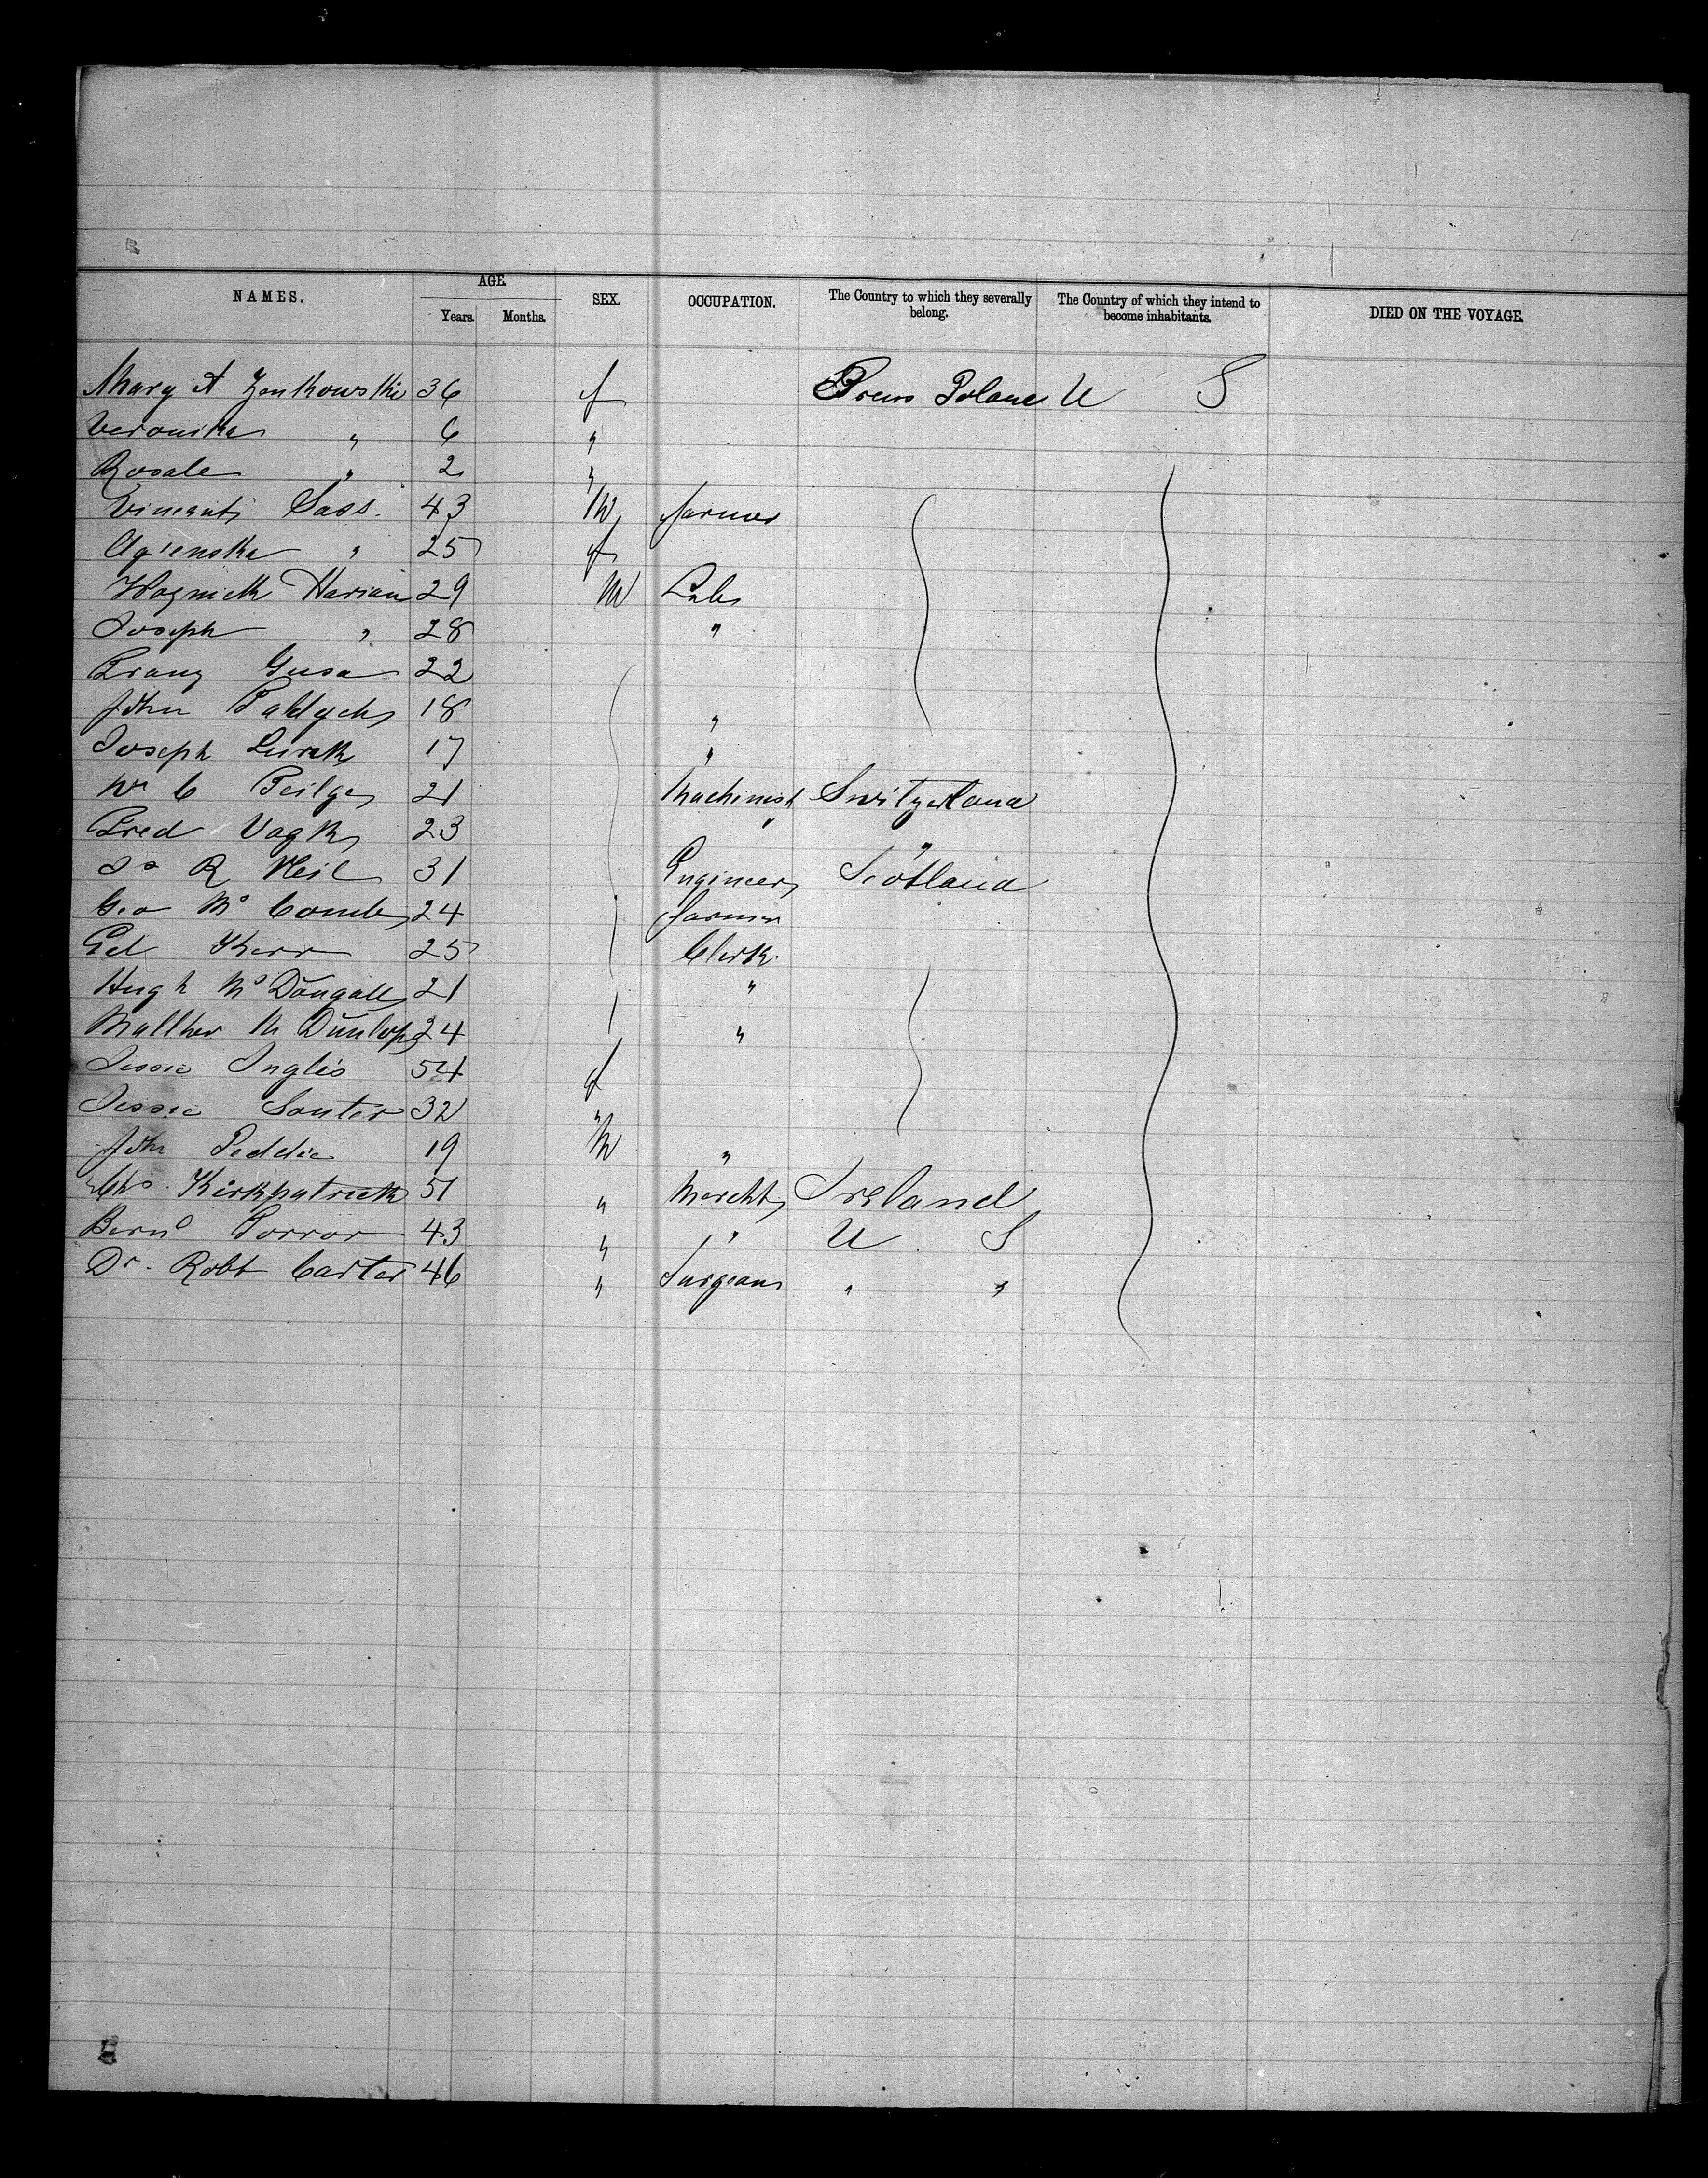 NAMES. AGE. SEX. OCCUPATION. The Country to which they severally belong. The Country of which they intend to become inhabitants. DIED ON THE VOYAGE.
Years. Months.
Mary A Zenkowski 36 f Preus Polane U S
Veronika " 6 "
Rosale " 2 "
Vincenti Sass. 43 M farmer
Agienska " 25 f
Harian 29 M Lab
Joseph " 28 "
Franz Gusa 22
John Paldych 18 "
Joseph Lurek 17 "
Wm C Peilge 21 Machinist Switzerland
Fred Vagk 23 " "
Js R Neil 31 Engineer Scotland
Geo McComb 24 farmer
Ed Kerr 25 Clerk
Hugh McDougall 21 "
M Dunlop 24 "
Jessie Inglis 54 f
Jessie Souter 32 "
John Peddie 19 M "
Chs Kirkpatrick 51 " Marcht Ireland
Bernd 43 " " U S
Dr. Robt Carter 46 " Surgeon " "